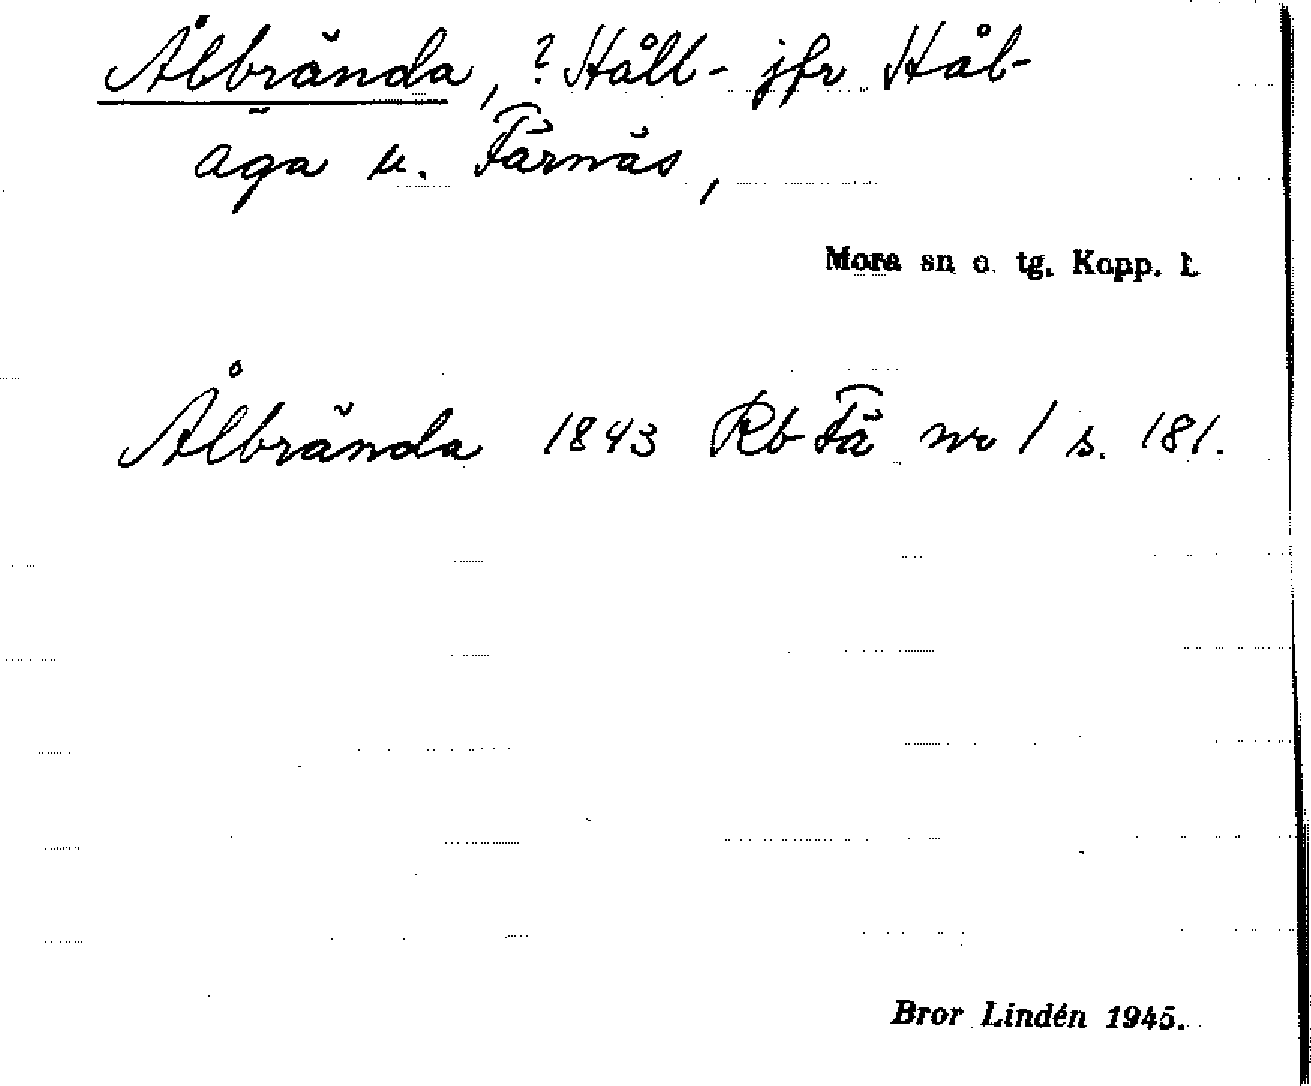 Ålbrända, ? Håll- jfr Hål-
äga u. Färnäs,
Mora sn o. tg. Kopp. l.
Ålbrända 1843 Rb Fä nr 1 s. 181.
Bror Lindén 1945.